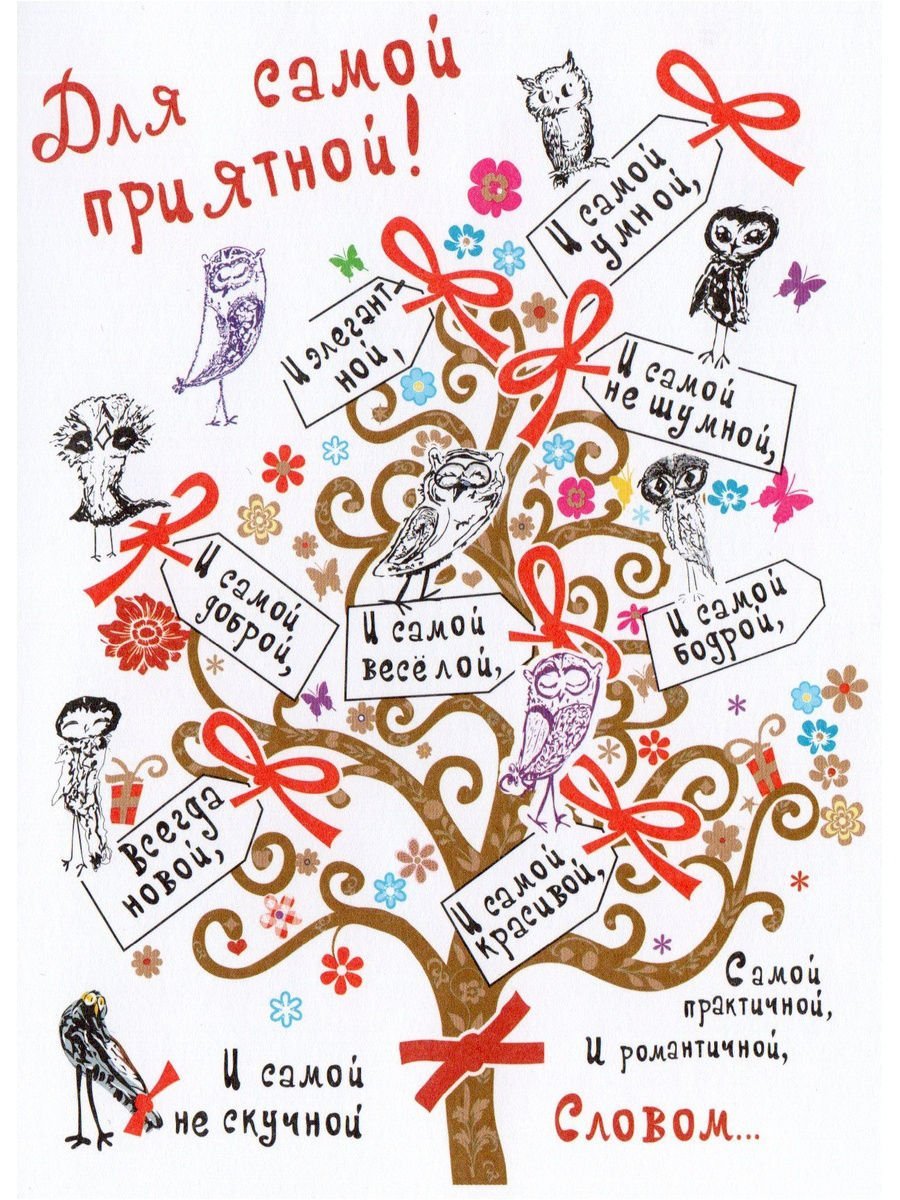 Для самой
приятной!
И самой
умной,
И элегант-
ной,
И самой
не шумной,
И самой
доброй,
И самой
весёлой,
И самой
бодрой,
Всегда
новой,
И самой
красивой,
Самой
практичной,
И романтичной,
И самой
не скучной
Словом...